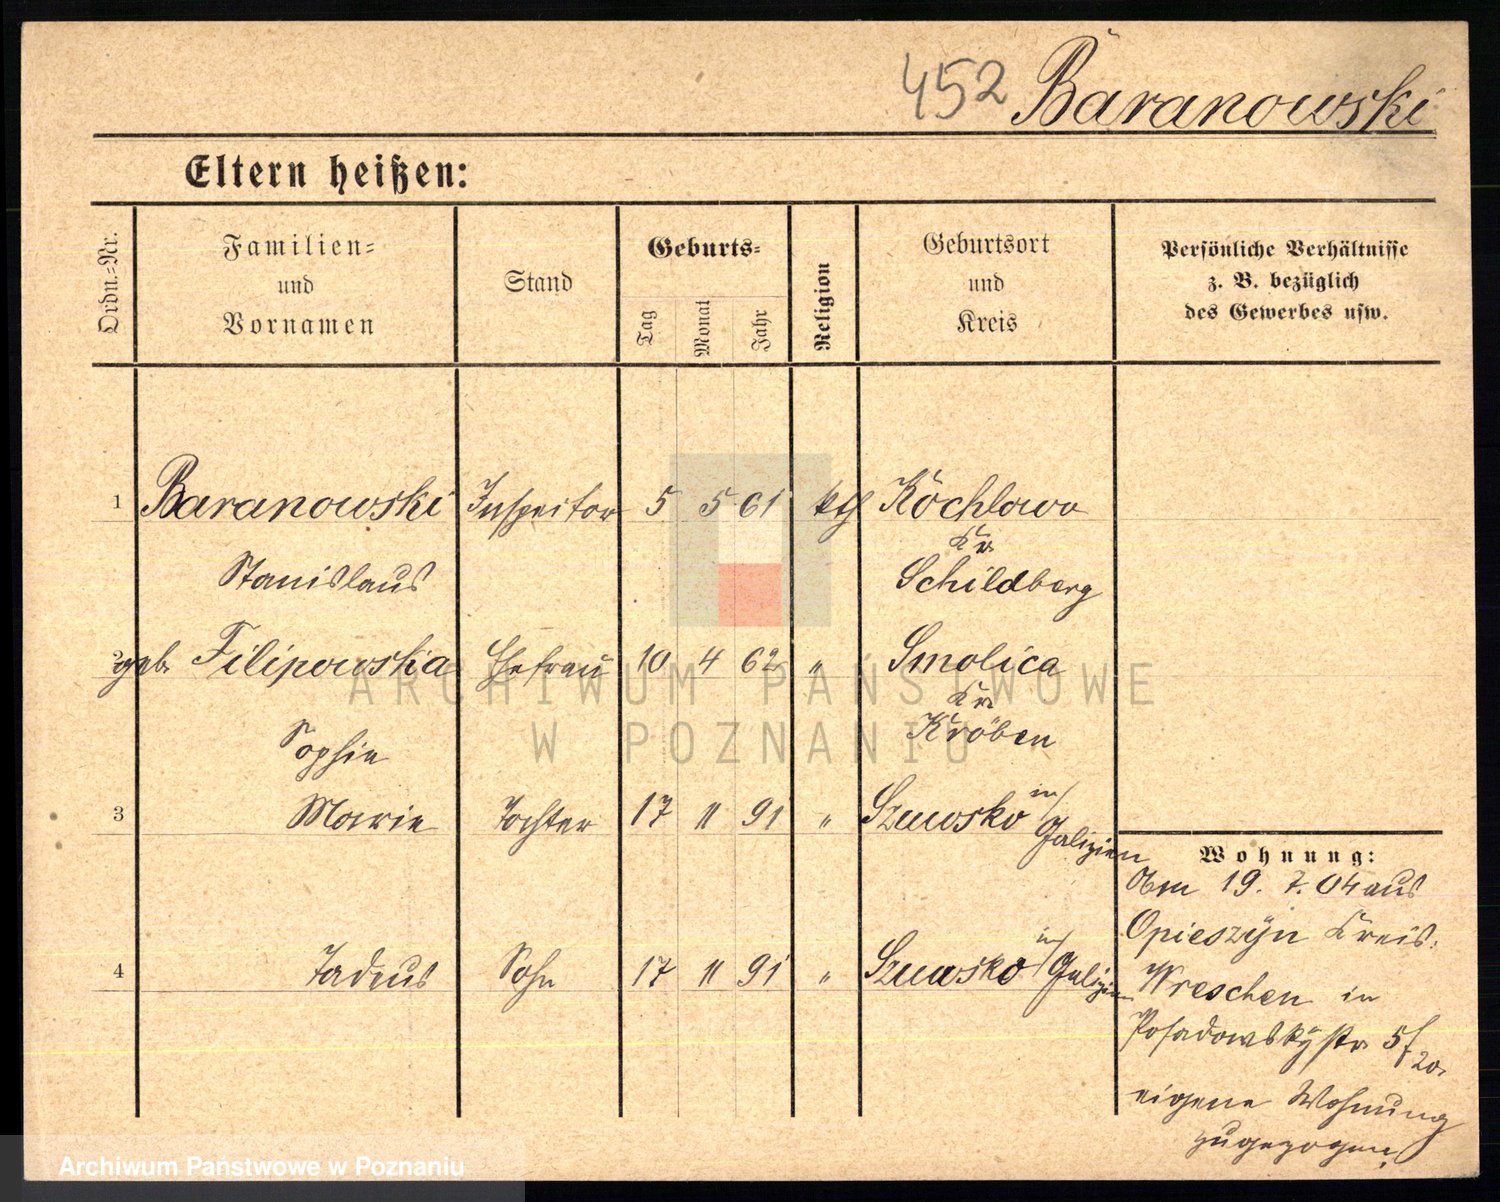 452 Baranowski
Eltern heißen:
Ordn.-Nr.
Familien-
und
Vornamen
Stand
Geburts-
Tag
Monat
Jahr
Religion
Geburtsort
und
Kreis
Persönliche Verhältnisse
z. B. bezüglich
des Gewerbes usw.
1 Baranowski Inspektor 5 5 61 kth Kochlowo
Kr.
Stanislaus Schildberg
2 geb. Filipowska Ehefrau 10 4 62 " Smolica
Kr.
Kröben
Sophie
3 Marie Tochter 17 11 91 " in
Galizien
Wohnung:
19. 7. 04 aus
Opieszyn Kreis
4 Tadeus Sohn 17 11 91 " in Galizien
Wreschen in
Posadowskystr. 5/20.
eigene Wohnung
zugezogen.
ARCHIWUM PAŃSTWOWE
W POZNANIU
Archiwum Państwowe w Poznaniu